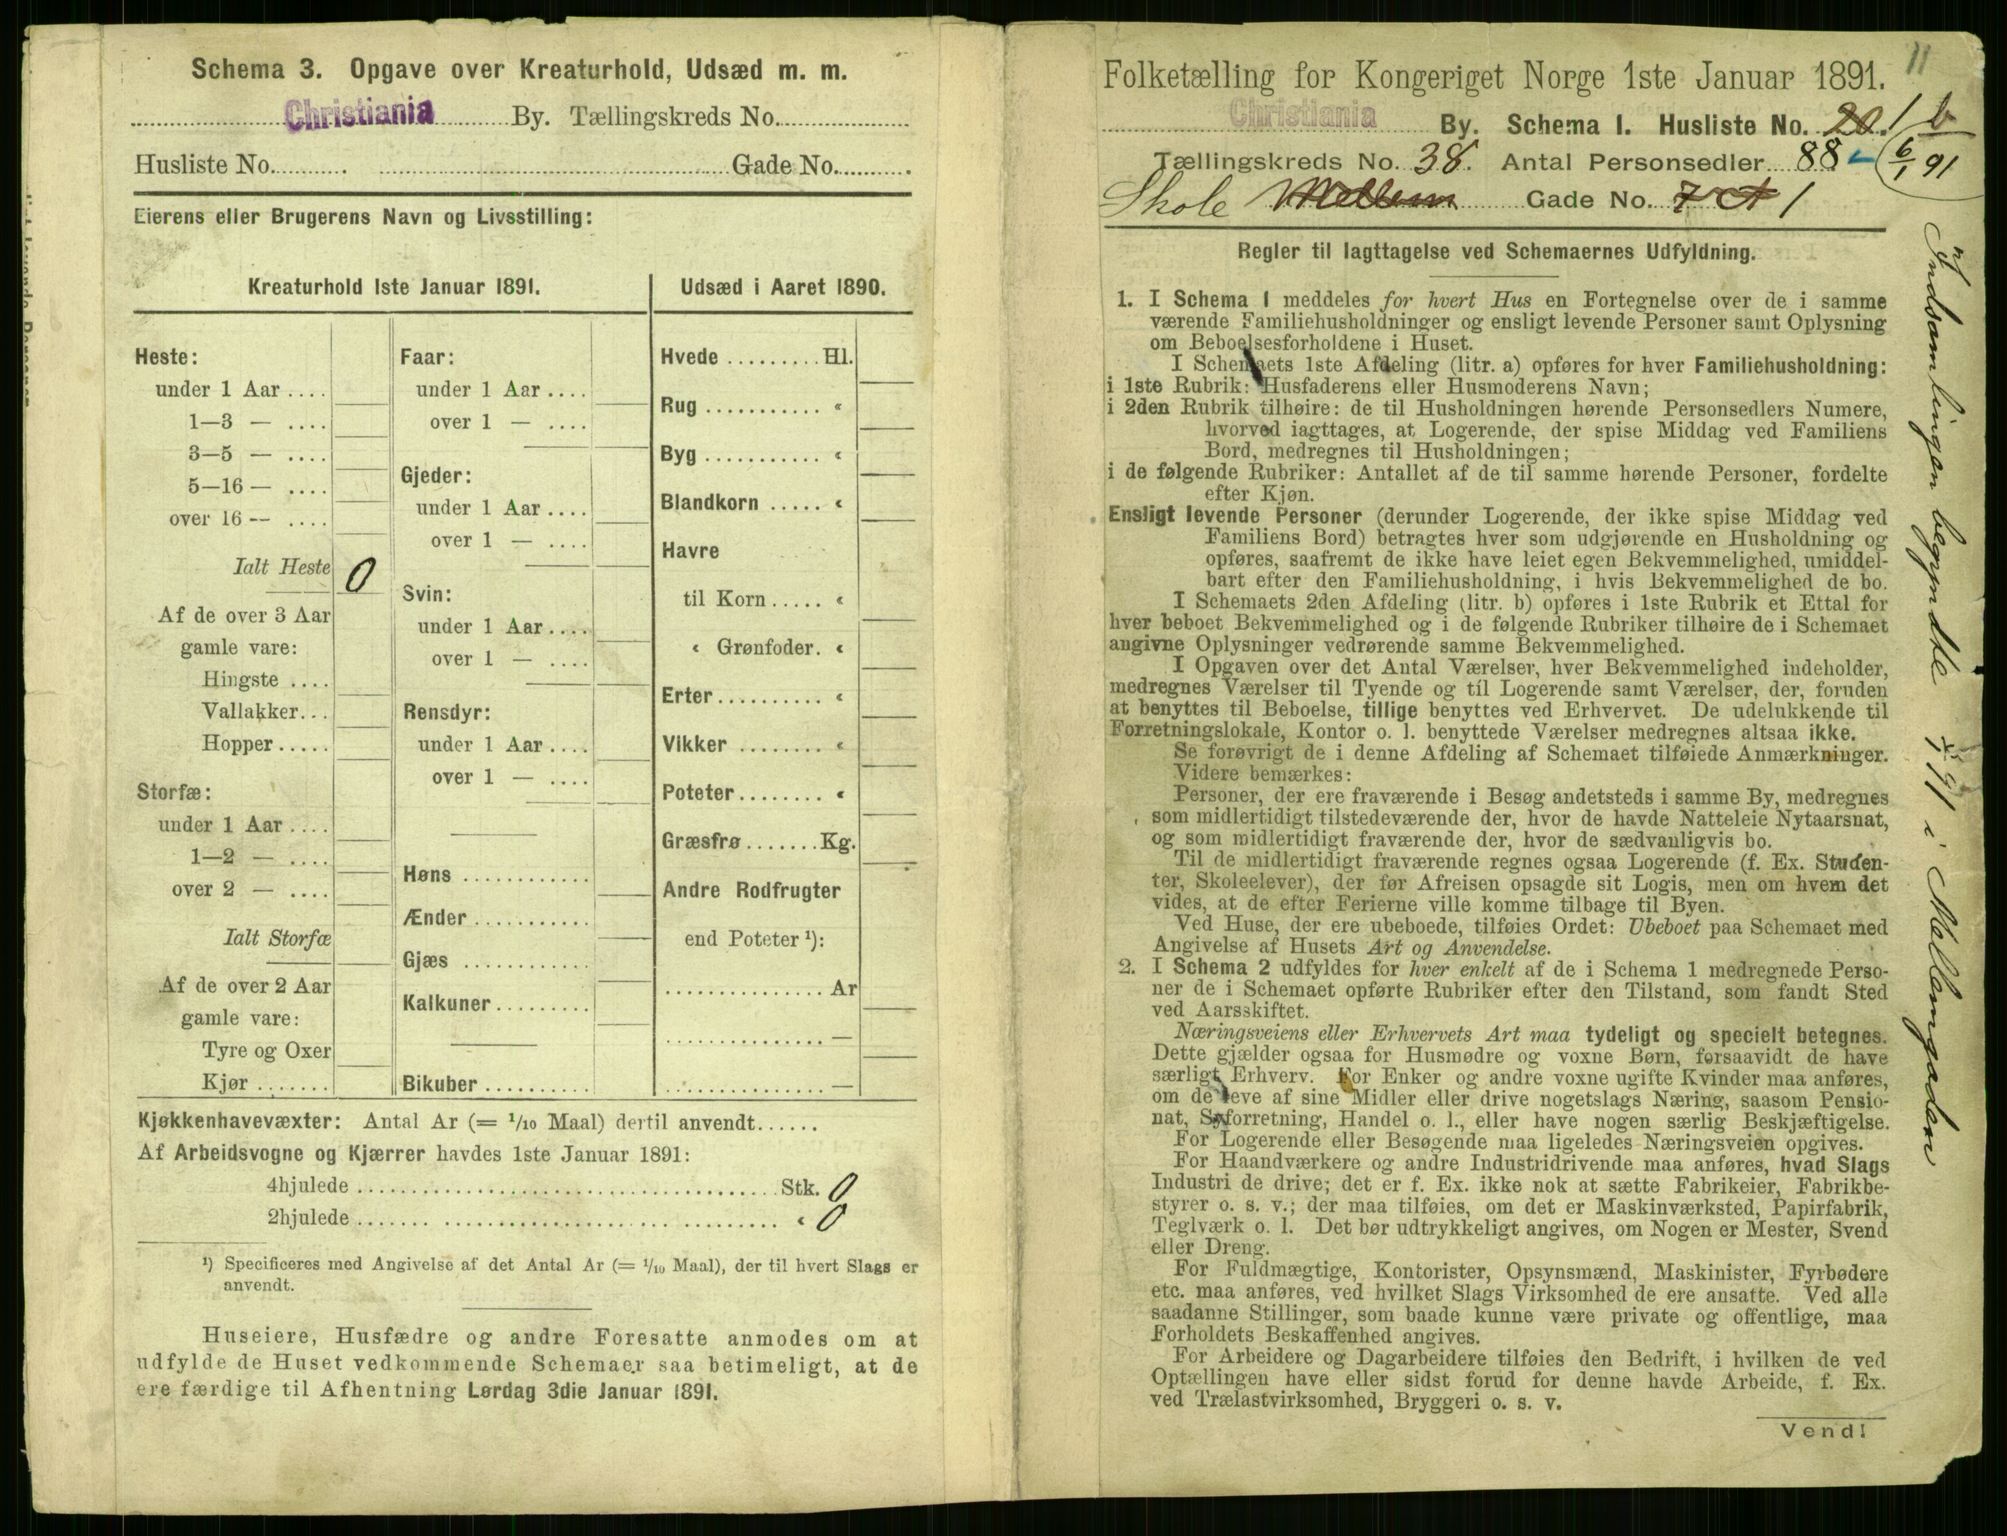 Schema 3. Opgave over Kreaturhold, Udsæd m. m.
Christiania By. Tællingskreds No.
Husliste No. Gade No.
Eierens eller Brugerens Navn og Livsstilling:
Kreaturhold 1ste Januar 1891.
Heste:
under 1 Aar
1—3 —
3—5 —
5—16 —
over 16 —
Ialt Heste 0
Af de over 3 Aar
gamle vare:
Hingste
Vallakker
Hopper
Storfæ:
under 1 Aar
1—2 —
over 2 —
Ialt Storfæ
Af de over 2 Aar
gamle vare:
Tyre og Oxer
Kjør
Faar:
under 1 Aar
over 1 —
Gjeder:
under 1 Aar
over 1 —
Svin:
under 1 Aar
over 1 —
Rensdyr:
under 1 Aar
over 1 —
Høns
Ænder
Gjæs
Kalkuner
Bikuber
Udsæd i Aaret 1890.
Hvede Hl.
Rug «
Byg «
Blandkorn «
Havre
til Korn «
« Grønfoder. «
Erter «
Vikker «
Poteter «
Græsfrø Kg.
Andre Rodfrugter
end Poteter ¹):
Ar
—
—
Kjøkkenhavevæxter: Antal Ar (= 1/10 Maal) dertil anvendt
Af Arbeidsvogne og Kjærrer havdes 1ste Januar 1891:
4hjulede Stk. 0
2hjulede « 0
¹) Specificeres med Angivelse af det Antal Ar (= 1/10 Maal), der til hvert Slags er
anvendt.
Huseiere, Husfædre og andre Foresatte anmodes om at
udfylde de Huset vedkommende Schemaer saa betimeligt, at de
ere færdige til Afhentning Lørdag 3die Januar 1891.
11
Folketælling for Kongeriget Norge 1ste Januar 1891.
Christiania By. Schema 1. Husliste No. 20. 1 b
Tællingskreds No. 38. Antal Personsedler 88 6/1 91
Skole Mellem Gade No. 7 A 1
Regler til Iagttagelse ved Schemaernes Udfyldning.
1. I Schema 1 meddeles for hvert Hus en Fortegnelse over de i samme
værende Familiehusholdninger og ensligt levende Personer samt Oplysning
om Beboelsesforholdene i Huset.
I Schemaets 1ste Afdeling (litr. a) opføres for hver Familiehusholdning:
i 1ste Rubrik: Husfaderens eller Husmoderens Navn;
i 2den Rubrik tilhøire: de til Husholdningen hørende Personsedlers Numere,
hvorved iagttages, at Logerende, der spise Middag ved Familiens
Bord, medregnes til Husholdningen;
i de følgende Rubriker: Antallet af de til samme hørende Personer, fordelte
efter Kjøn.
Ensligt levende Personer (derunder Logerende, der ikke spise Middag ved
Familiens Bord) betragtes hver som udgjørende en Husholdning og
opføres, saafremt de ikke have leiet egen Bekvemmelighed, umiddel-
bart efter den Familiehusholdning, i hvis Bekvemmelighed de bo.
I Schemaets 2den Afdeling (litr. b) opføres i 1ste Rubrik et Ettal for
hver beboet Bekvemmelighed og i de følgende Rubriker tilhøire de i Schemaet
angivne Oplysninger vedrørende samme Bekvemmelighed.
I Opgaven over det Antal Værelser, hver Bekvemmelighed indeholder,
medregnes Værelser til Tyende og til Logerende samt Værelser, der, foruden
at benyttes til Beboelse, tillige benyttes ved Erhvervet. De udelukkende til
Forretningslokale, Kontor o. l. benyttede Værelser medregnes altsaa ikke.
Se forøvrigt de i denne Afdeling af Schemaet tilføiede Anmærkninger.
Videre bemærkes:
Personer, der ere fraværende i Besøg andetsteds i samme By, medregnes
som midlertidigt tilstedeværende der, hvor de havde Natteleie Nytaarsnat,
og som midlertidigt fraværende der, hvor de sædvanligvis bo.
Til de midlertidigt fraværende regnes ogsaa Logerende (f. Ex. Studen-
ter, Skoleelever), der før Afreisen opsagde sit Logis, men om hvem det
vides, at de efter Ferierne ville komme tilbage til Byen.
Ved Huse, der ere ubeboede, tilføies Ordet: Ubeboet paa Schemaet med
Angivelse af Husets Art og Anvendelse.
2. I Schema 2 udfyldes for hver enkelt af de i Schema 1 medregnede Perso-
ner de i Schemaet opførte Rubriker efter den Tilstand, som fandt Sted
ved Aarsskiftet.
Næringsveiens eller Erhvervets Art maa tydeligt og specielt betegnes.
Dette gjælder ogsaa for Husmødre og voxne Børn, forsaavidt de have
særligt Erhverv. For Enker og andre voxne ugifte Kvinder maa anføres,
om de leve af sine Midler eller drive nogetslags Næring, saasom Pensio-
nat, Syforretning, Handel o. l., eller have nogen særlig Beskjæftigelse.
For Logerende eller Besøgende maa ligeledes Næringsveien opgives.
For Haandværkere og andre Industridrivende maa anføres, hvad Slags
Industri de drive; det er f. Ex. ikke nok at sætte Fabrikeier, Fabrikbe-
styrer o. s. v.; der maa tilføies, om det er Maskinværksted, Papirfabrik,
Teglværk o. l. Det bør udtrykkeligt angives, om Nogen er Mester, Svend
eller Dreng.
For Fuldmægtige, Kontorister, Opsynsmænd, Maskinister, Fyrbødere
etc. maa anføres, ved hvilket Slags Virksomhed de ere ansatte. Ved alle
saadanne Stillinger, som baade kunne være private og offentlige, maa
Forholdets Beskaffenhed angives.
For Arbeidere og Dagarbeidere tilføies den Bedrift, i hvilken de ved
Optællingen have eller sidst forud for denne havde Arbeide, f. Ex.
ved Trælastvirksomhed, Bryggeri o. s. v.
Vend!
Indsamlingen begyndte i Mellemgaden